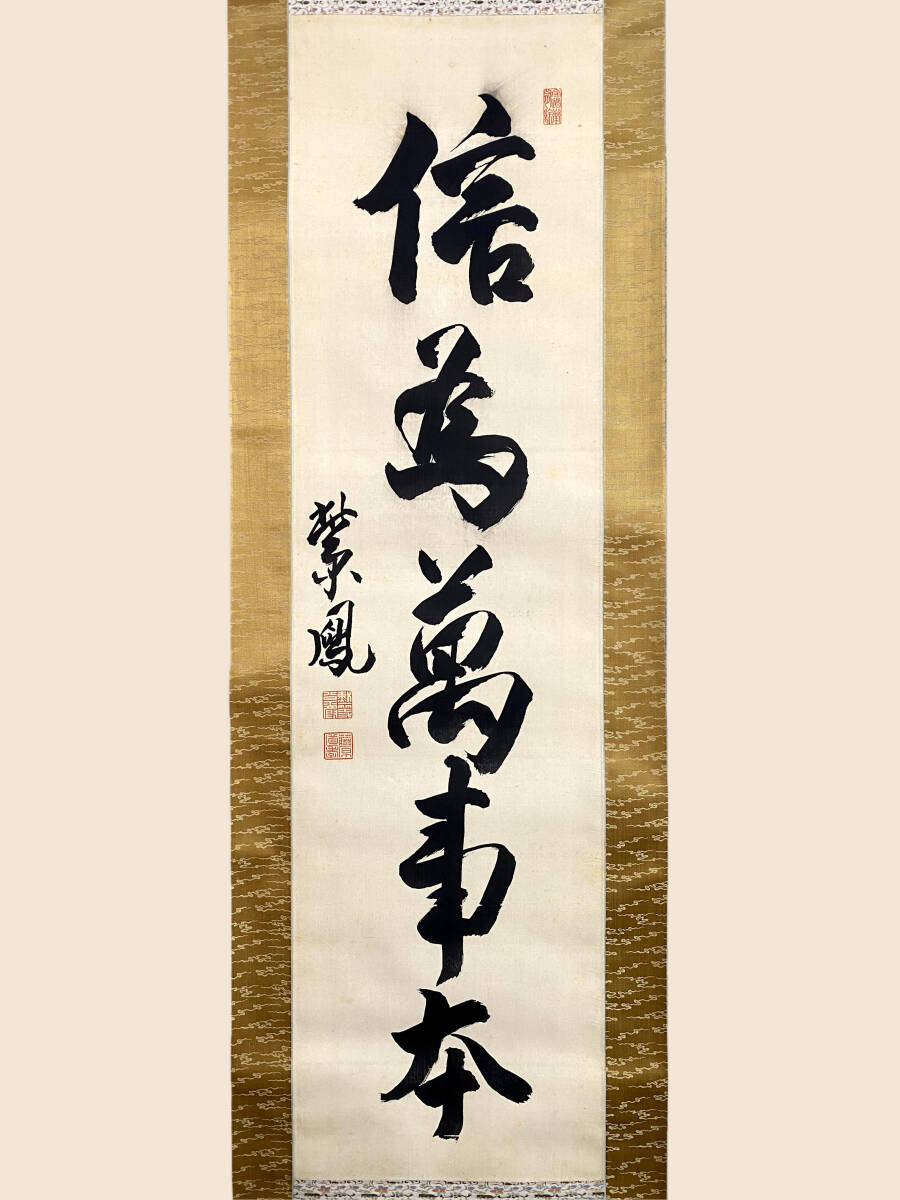 信為萬事本
紫鳳